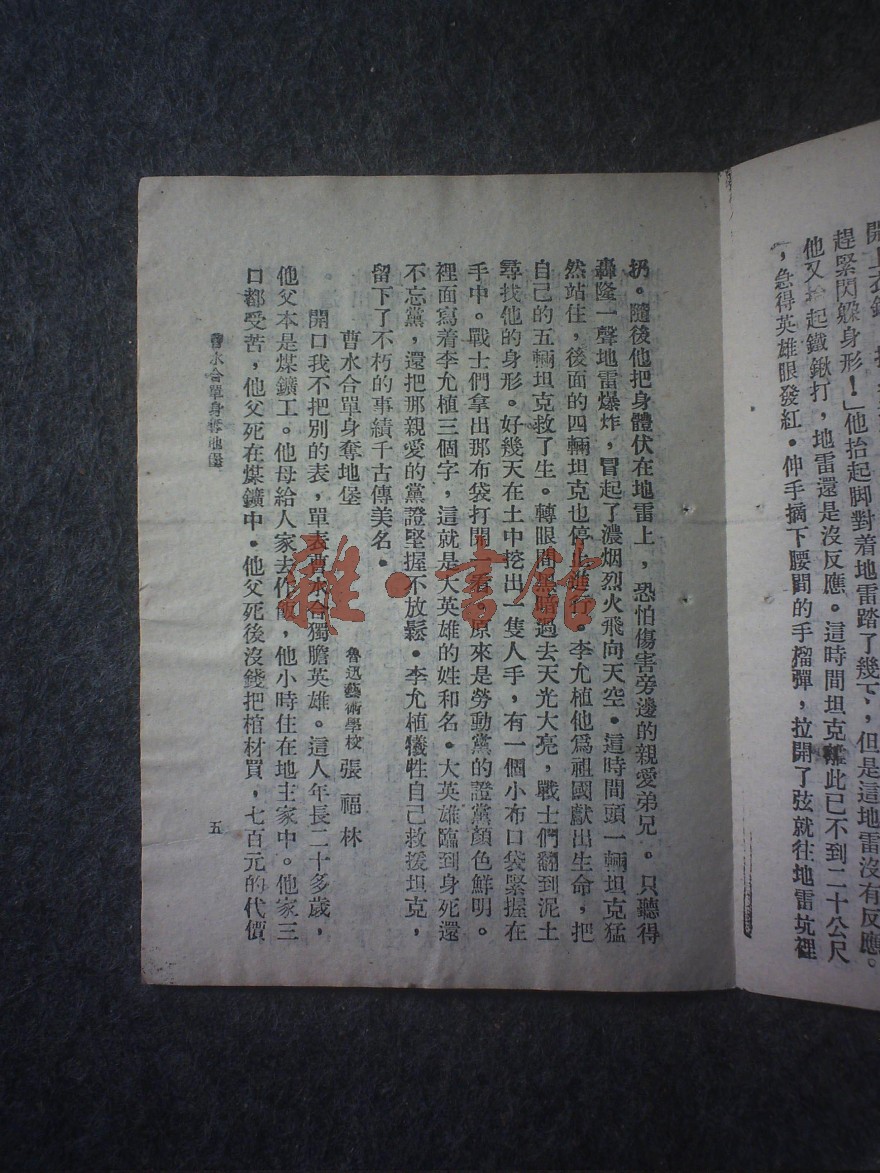 趕緊閃躲身形！」他抬起脚對着地雷踏了幾下，但是這地雷沒有反應。
他又 起鐵鍬打，地雷還是沒反應。這時間坦克離此已不到二十公尺
，急得英雄眼發紅。伸手摘下腰間的手榴彈，拉開了弦就往地雷坑裡
扔。隨後他把身體伏在地雷上，恐怕傷害旁邊的親愛弟兄。只聽得
轟隆一聲地雷爆炸，冒起了濃烟烈火飛向天空。這時間頭一輛坦克猛
然站住，後面的四輛坦克也停止進行。李允植他爲祖國獻出生命，把
自己的五輛坦克救了生。轉眼間黑暗過去天光大亮，戰士們翻到泥土
尋找他的身形。好幾天在土中挖出一隻人手，有一個小布口袋緊握在
手中。戰士們拿出那布袋打開一看，原來是勞動黨的證黨顏色鮮明。
裡面寫着李允植三個字，這就是大英雄的姓和名。大英雄臨到身死還
不忘黨，還把那親愛的黨證堅握不放鬆。李允植犧牲自己救援坦克，
留下了不朽的事績千古傳美名。
曹水合單身奪地堡
魯迅藝術學校 張福林
開口我不把別的表，單表曹水合獨膽英雄。這人年長二十多歲，
他父本是煤鑛工。他母給人家去作飯，他小時住在地主家中。他家三
口都受苦，他父死在煤鑛中。他父死後沒錢把棺材買，七百元的代價
曹水合單身奪地堡
五
雜·書館